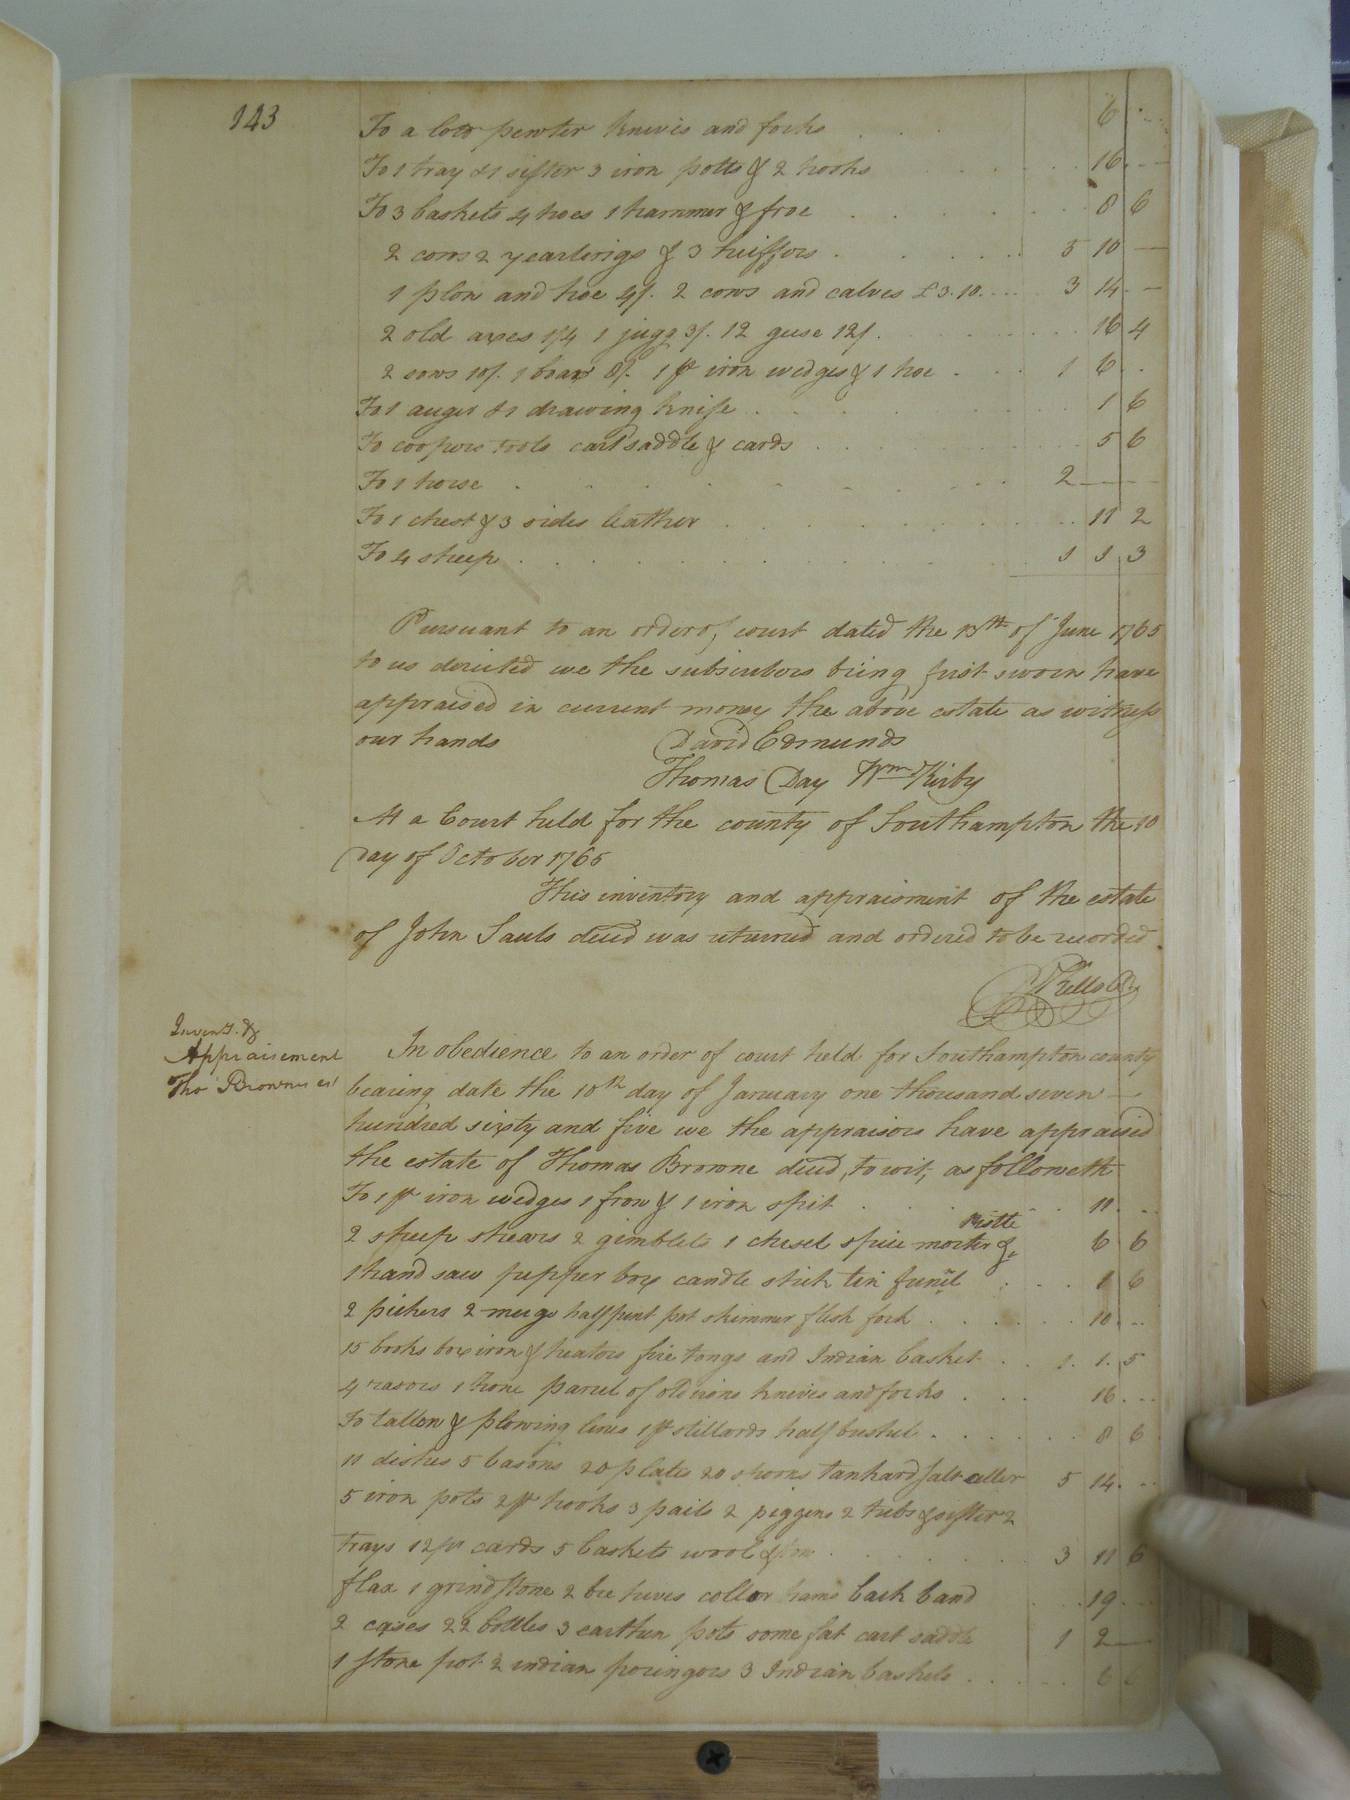 143
To a lott pewter knives and forks . . . 6 .
To 1 tray & 1 sifter 3 iron potts & 2 hooks . . . 16 . —
To 3 baskets 4 hoes 1 hammer & froe . . . 8 6
2 cows 2 yearlings & 3 heiffers . . . 5 10 —
1 plow and hoe 4/. 2 cows and calves £3.10. . . . 3 14 . —
2 old axes 1/4 1 jugg 3/. 12 geese 12/. . . . 16 4
2 sows 10/. 1 boar 8/. 1 pr iron wedges & 1 hoe . . . 1 6 .
To 1 auger & 1 drawing knife . . . 1 6
To coopers tools cart saddle & cards . . . 5 6
To 1 horse . . . 2 — —
To 1 chest & 3 sides leather . . . 11 2
To 4 sheep . . . 1 1 3
Pursuant to an order of court dated the 13th of June 1765
to us directed we the subscribers being first sworn have
appraised in current money the above estate as witness
our hands David Edmunds
Thomas Day Wm Kirby
At a Court held for the county of Southampton the 10
Day of October 1765
This inventory and appraisment of the estate
of John Sauls deced was returned and ordered to be recorded
Kello
Invent. &
Appraisement
Tho Browns est
In obedience to an order of court held for Southampton county
bearing date the 10th day of January one thousand seven —
hundred sixty and five we the appraisors have appraised
the estate of Thomas Browne deced, to wit, as followeth
To 1 pr iron wedges 1 frow & 1 iron spit . . . 11 . ..
2 sheep shears 2 gimblets 1 chesel spice morter & pestle 6 6
1 hand saw pepper box candle stick tin funel . . . 1 6
2 pichers 2 mugs half pint pot skimmer flesh fork . . . 10 . ..
15 books box iron & heators fire tongs and Indian basket . . 1 . 1 . 5
4 rasors 1 hone parcel of old irons knives and forks . . . 16 . ..
To tallon & plowing lines 1 pr stillards half bushel . . . 8 6
11 dishes 5 basons 20 plates 20 spoons tankard salt celler 5 14 . ..
5 iron pots 2 pr hooks 3 pails 2 piggins 2 tubs & sifter 2
trays 12 pr cards 5 baskets wool & . . . 3 11 6
flax 1 grindstone 2 bee hives collor hams back band . . 19 . ..
2 cases 22 bottles 3 earthen pots some fat cart saddle 1 2 —
1 stone pot 2 indian poringors 3 Indian baskets . . . 6 6